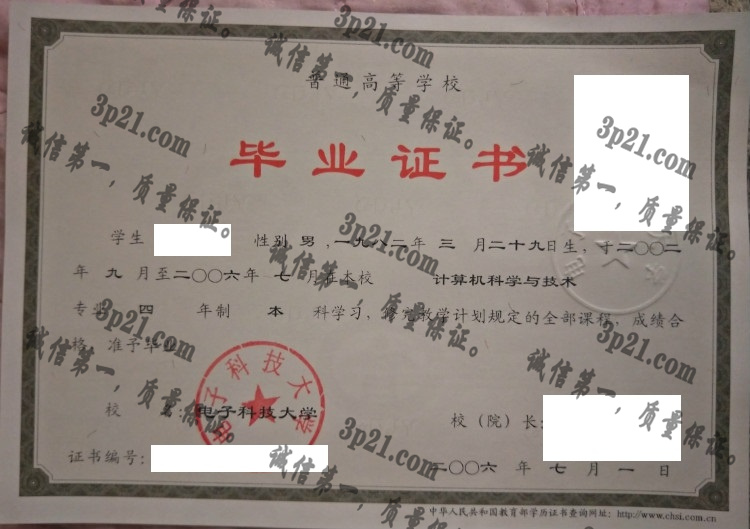 普通高等学校
毕业证书
学生 性别 男，一九八二年 三 月二十九日生，于二〇〇二
年 九 月至二〇〇六年 七 月在本校 计算机科学与技术
专业 四 年制 本 科学习，修完教学计划规定的全部课程，成绩合
格，准予毕业。
校 ：电子科技大学
校（院）长：
证书编号：
二〇〇六 年 七 月 一 日
中华人民共和国教育部学历证书查询网址：http://www.chsi.com.cn
电子科技大学
3p21.com
诚信第一，质量保证。
3p21.com
诚信第一，质量保证。
3p21.com
诚信第一，质量保证。
3p21.com
诚信第一，质量保证。
3p21.com
诚信第一，质量保证。
3p21.com
诚信第一，质量保证。
3p21.com
诚信第一，质量保证。
诚信第一，质量保证。